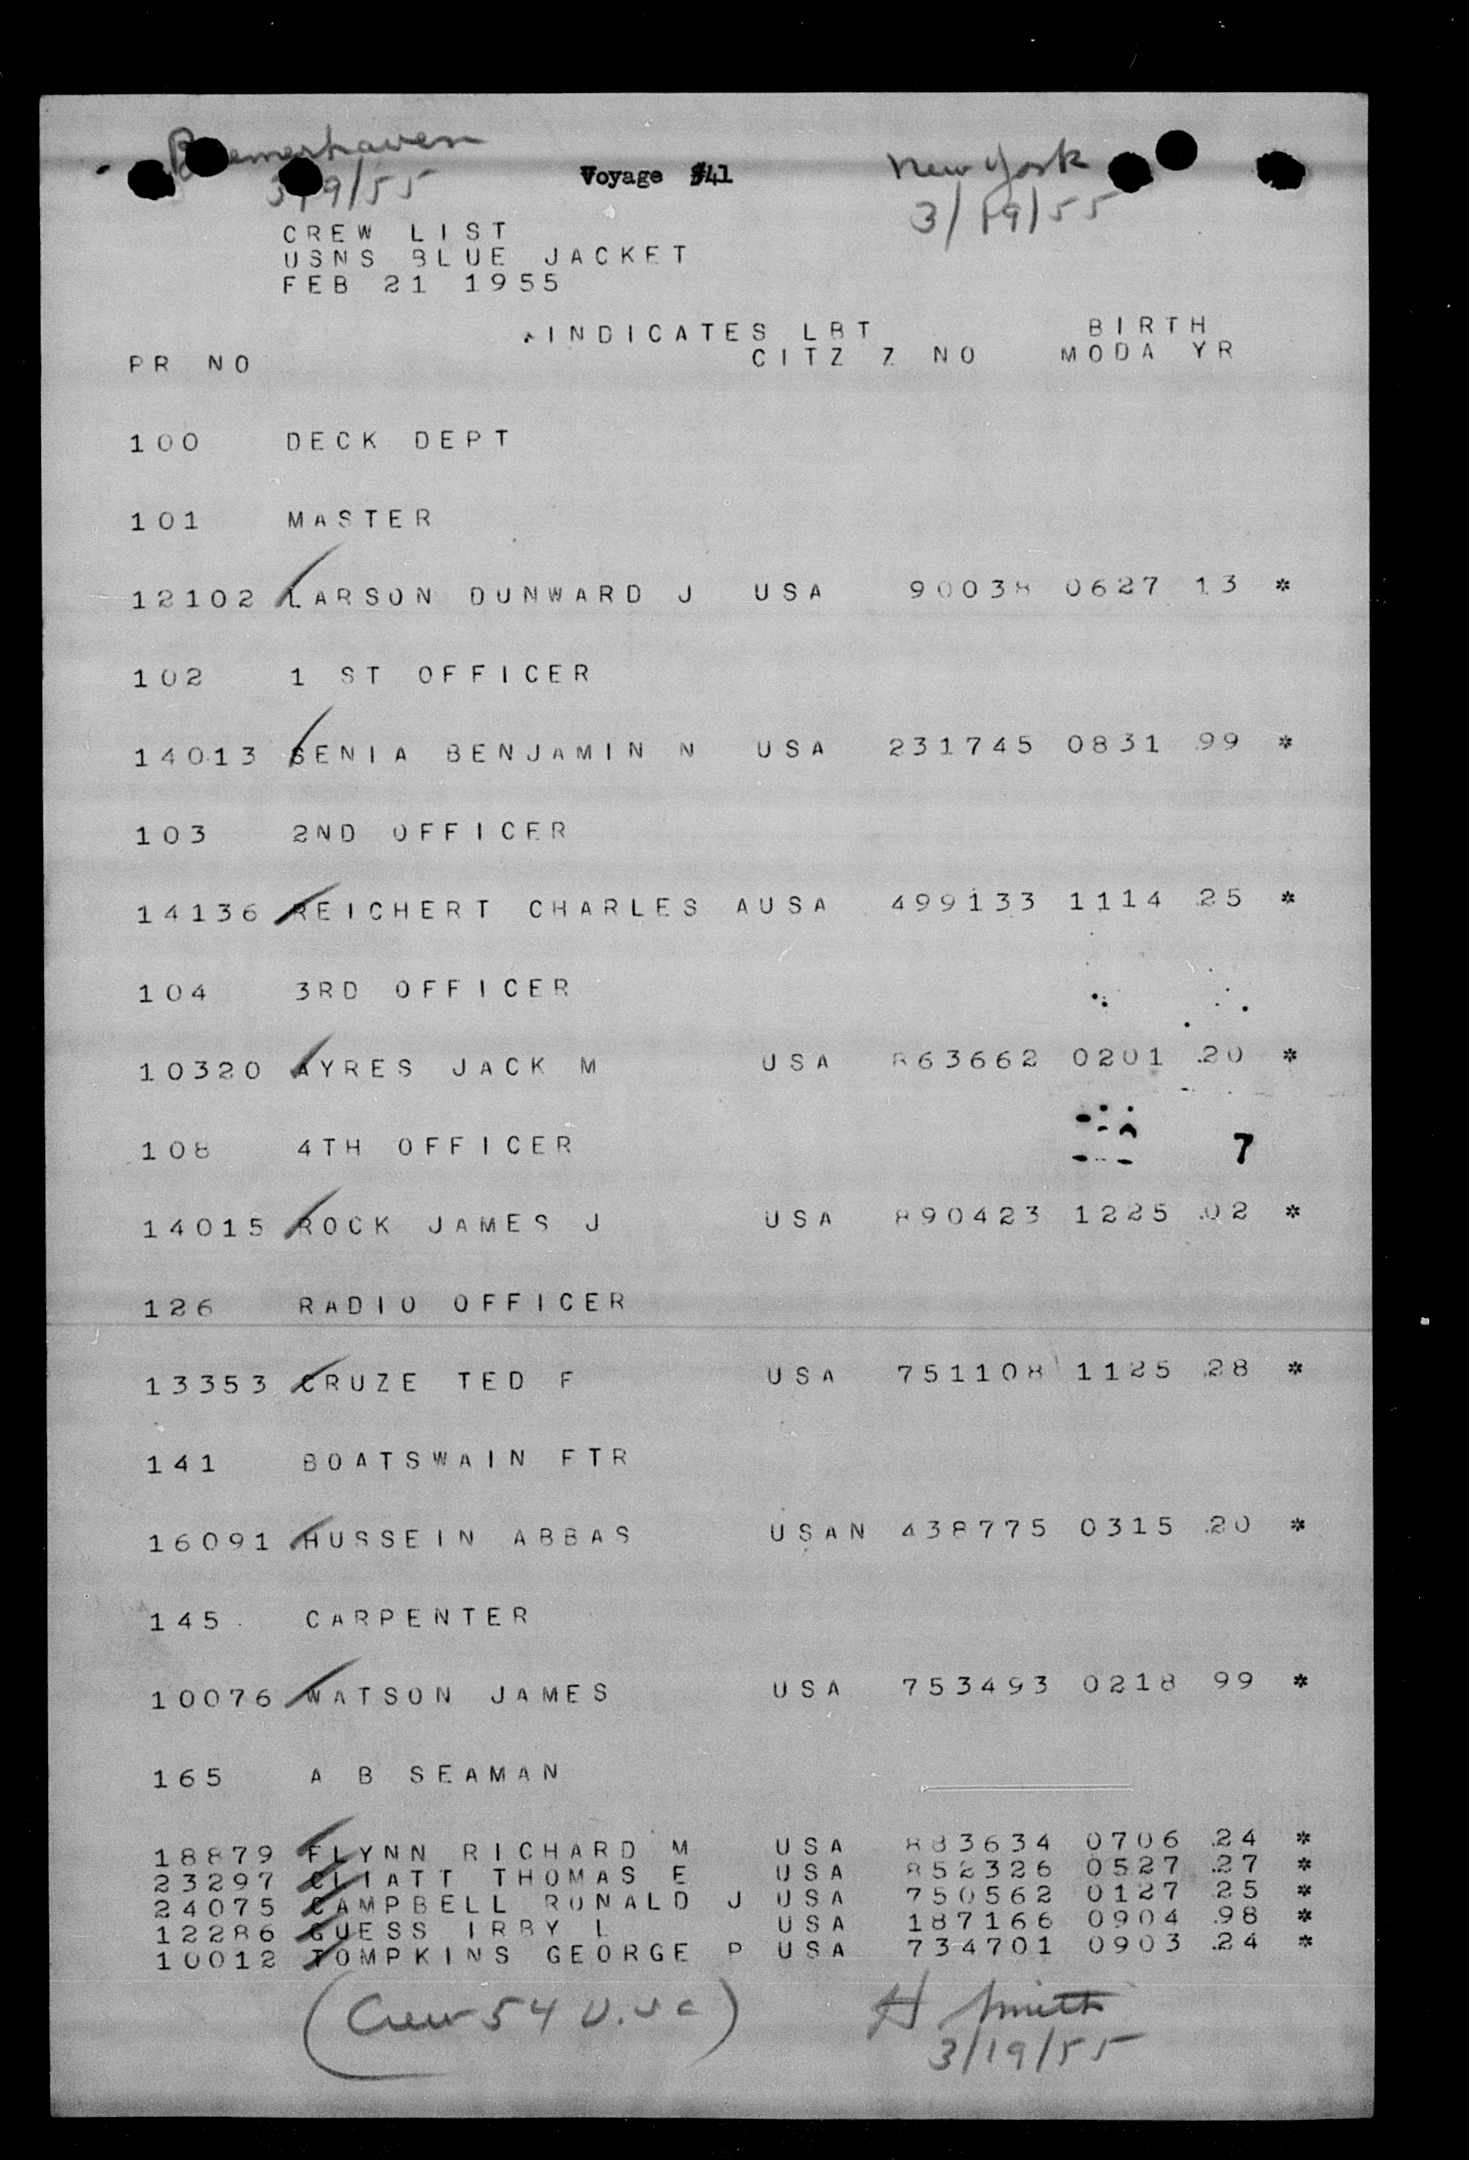 Bremerhaven
3/9/55
Voyage #41
New York
3/19/55
CREW LIST
USNS BLUE JACKET
FEB 21 1955
*INDICATES LBT BIRTH
PR NO CITZ Z NO MODA YR
100 DECK DEPT
101 MASTER
12102 LARSON DUNWARD J USA 90038 0627 13 *
102 1 ST OFFICER
14013 SENIA BENJAMIN N USA 231745 0831 99 *
103 2ND OFFICER
14136 REICHERT CHARLES AUSA 499133 1114 25 *
104 3RD OFFICER
10320 AYRES JACK M USA 863662 0201 20 *
108 4TH OFFICER
7
14015 ROCK JAMES J USA 890423 1225 02 *
126 RADIO OFFICER
13353 CRUZE TED F USA 751108 1125 28 *
141 BOATSWAIN FTR
16091 HUSSEIN ABBAS USAN 438775 0315 20 *
145 CARPENTER
10076 WATSON JAMES USA 753493 0218 99 *
165 A B SEAMAN
18879 FLYNN RICHARD M USA 883634 0706 24 *
23297 CLIATT THOMAS E USA 852326 0527 27 *
24075 CAMPBELL RONALD J USA 750562 0127 25 *
12286 GUESS IRBY L USA 187166 0904 98 *
10012 TOMPKINS GEORGE P USA 734701 0903 24 *
(Crew 54 U.S.C)
H Smith
3/19/55